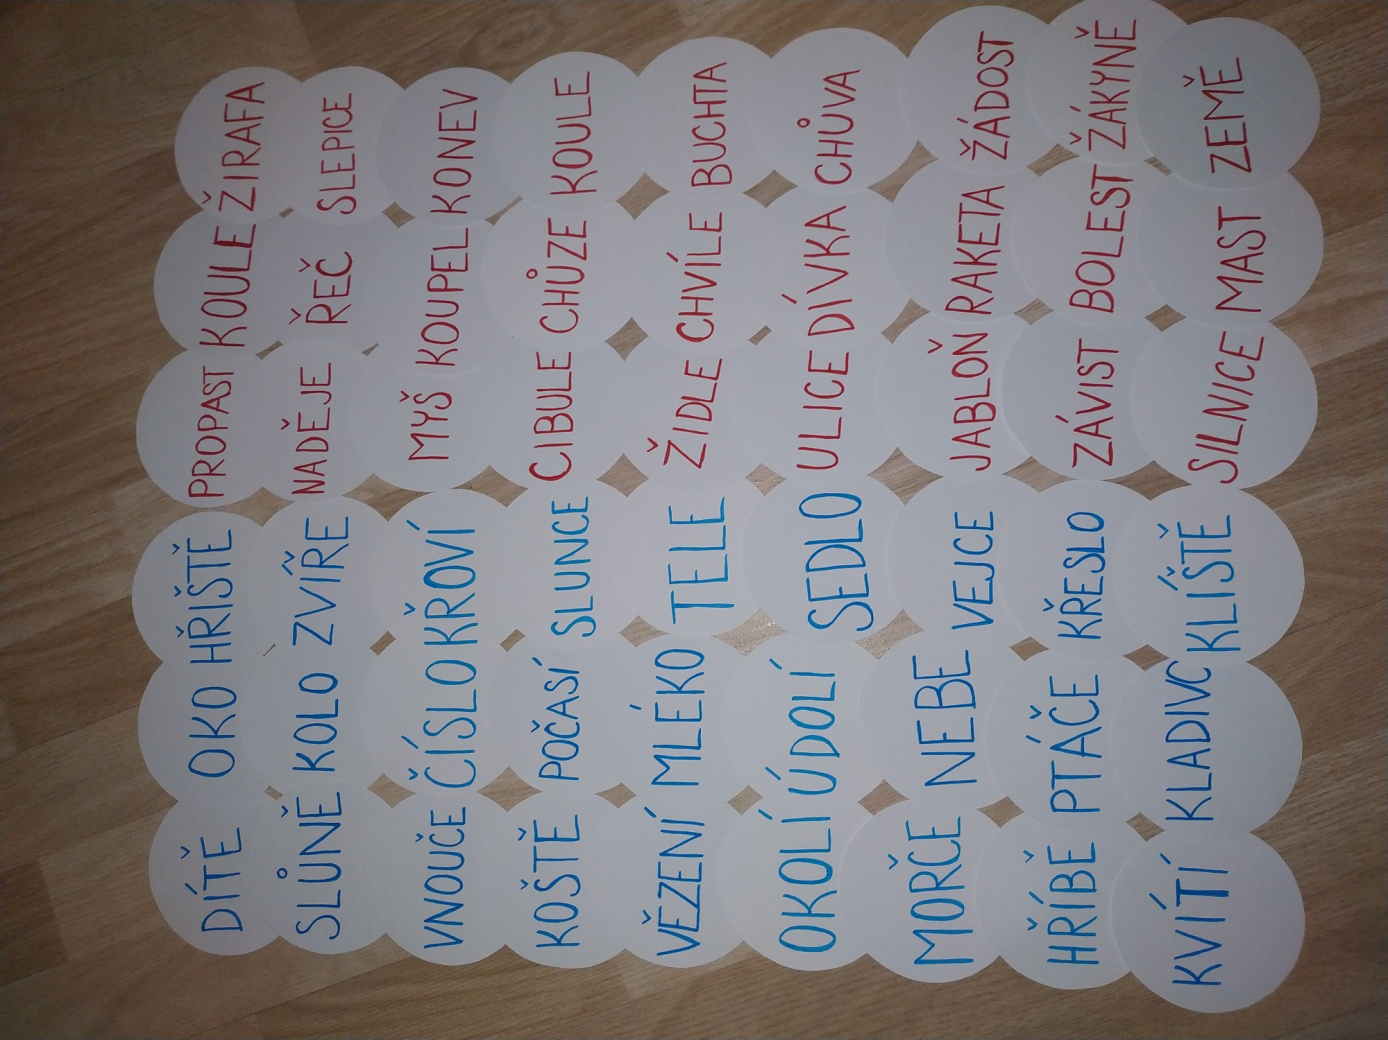 DÍTĚ OKO HŘIŠTĚ PROPAST KOULE ŽIRAFA
SLŮNĚ KOLO ZVÍŘE NADĚJE ŘEČ SLEPICE
VNOUČE ČÍSLO KŘOVÍ MYŠ KOUPEL KONEV
KOŠTĚ POČASÍ SLUNCE CIBULE CHŮZE KOULE
VĚZENÍ MLÉKO TELE ŽIDLE CHVÍLE BUCHTA
OKOLÍ ÚDOLÍ SEDLO ULICE DÍVKA CHŮVA
MORČE NEBE VEJCE JABLOŇ RAKETA ŽÁDOST
HŘÍBĚ PTÁČE KŘESLO ZÁVIST BOLEST ŽÁKYNĚ
KVÍTÍ KLADIVO KLÍŠTĚ SILNICE MAST ZEMĚ